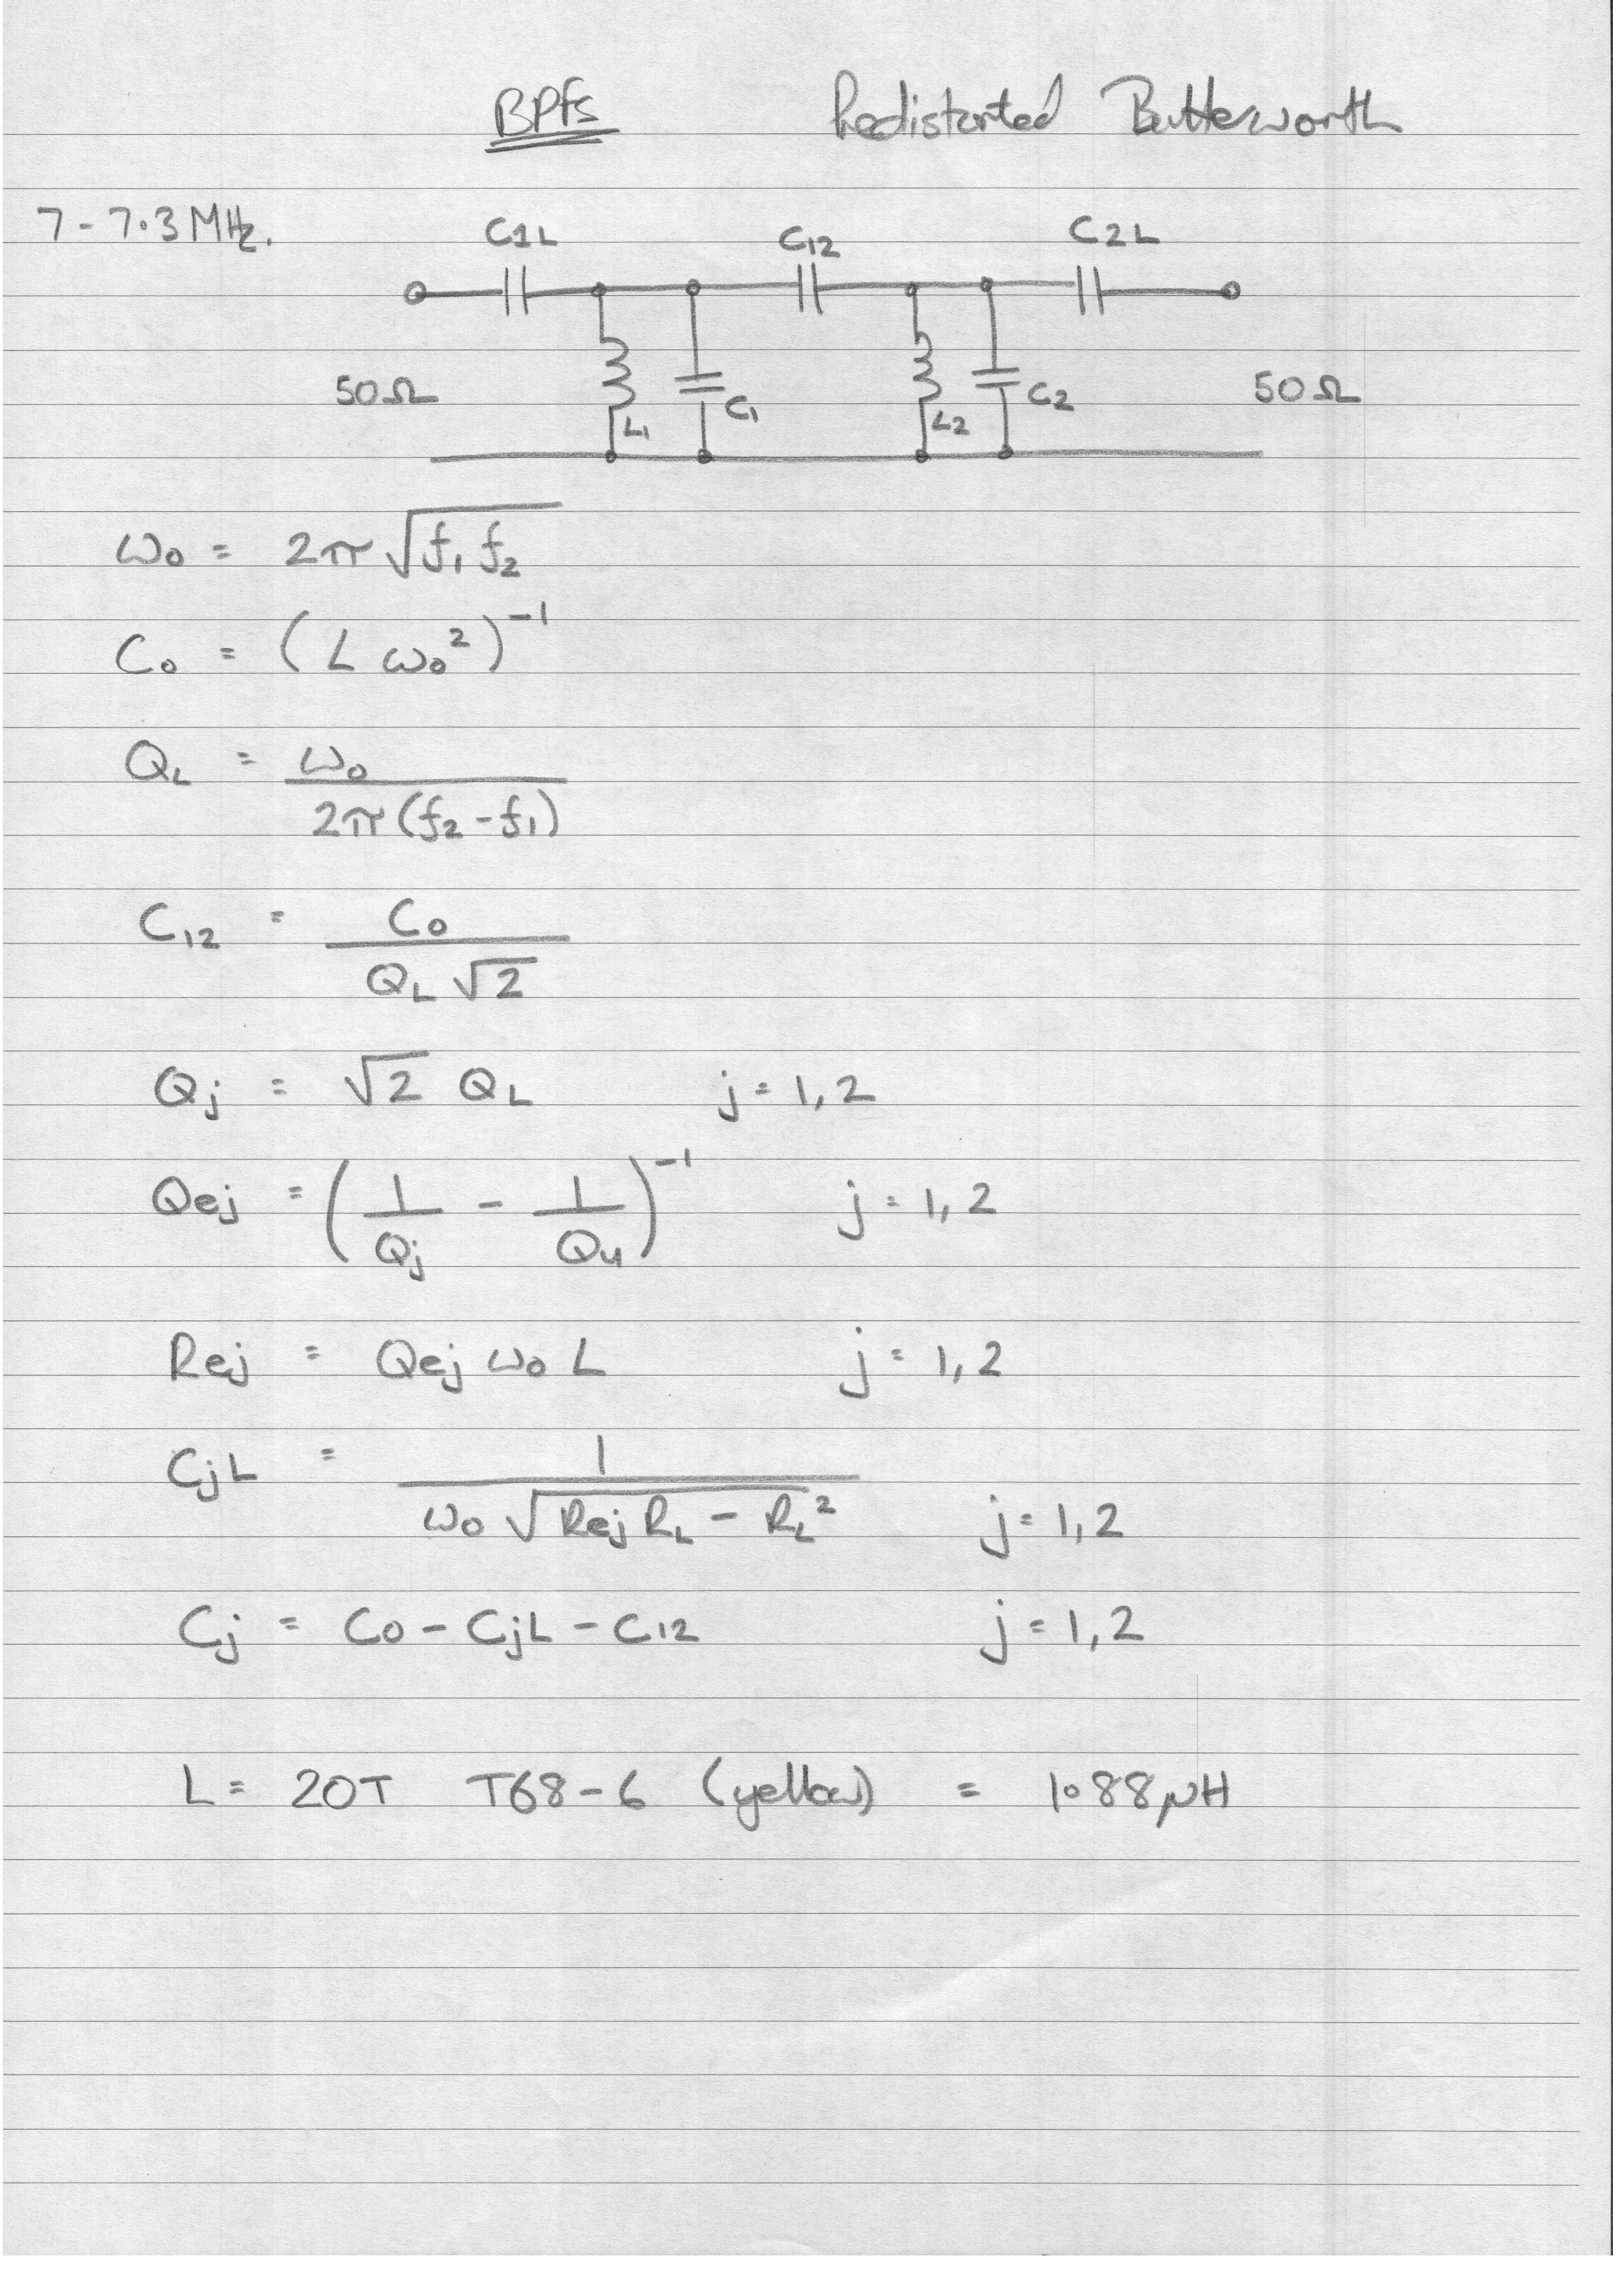 BPfs Predistorted Butterworth
7-7.3 MHz.
C1L C12 C2L
50Ω L1 C1 L2 C2 50Ω
ω0 = 2π √(f1 f2)
C0 = (L ω0²)⁻¹
QL = ω0 / 2π(f2-f1)
C12 = C0 / QL √2
Qj = √2 QL j = 1,2
Qej = (1/Qj - 1/Qu)⁻¹ j = 1,2
Rej = Qej ω0 L j = 1,2
CjL = 1 / ω0 √(Rej RL - RL²) j = 1,2
Cj = C0 - CjL - C12 j = 1,2
L = 20T T68-6 (yellow) = 1.88μH